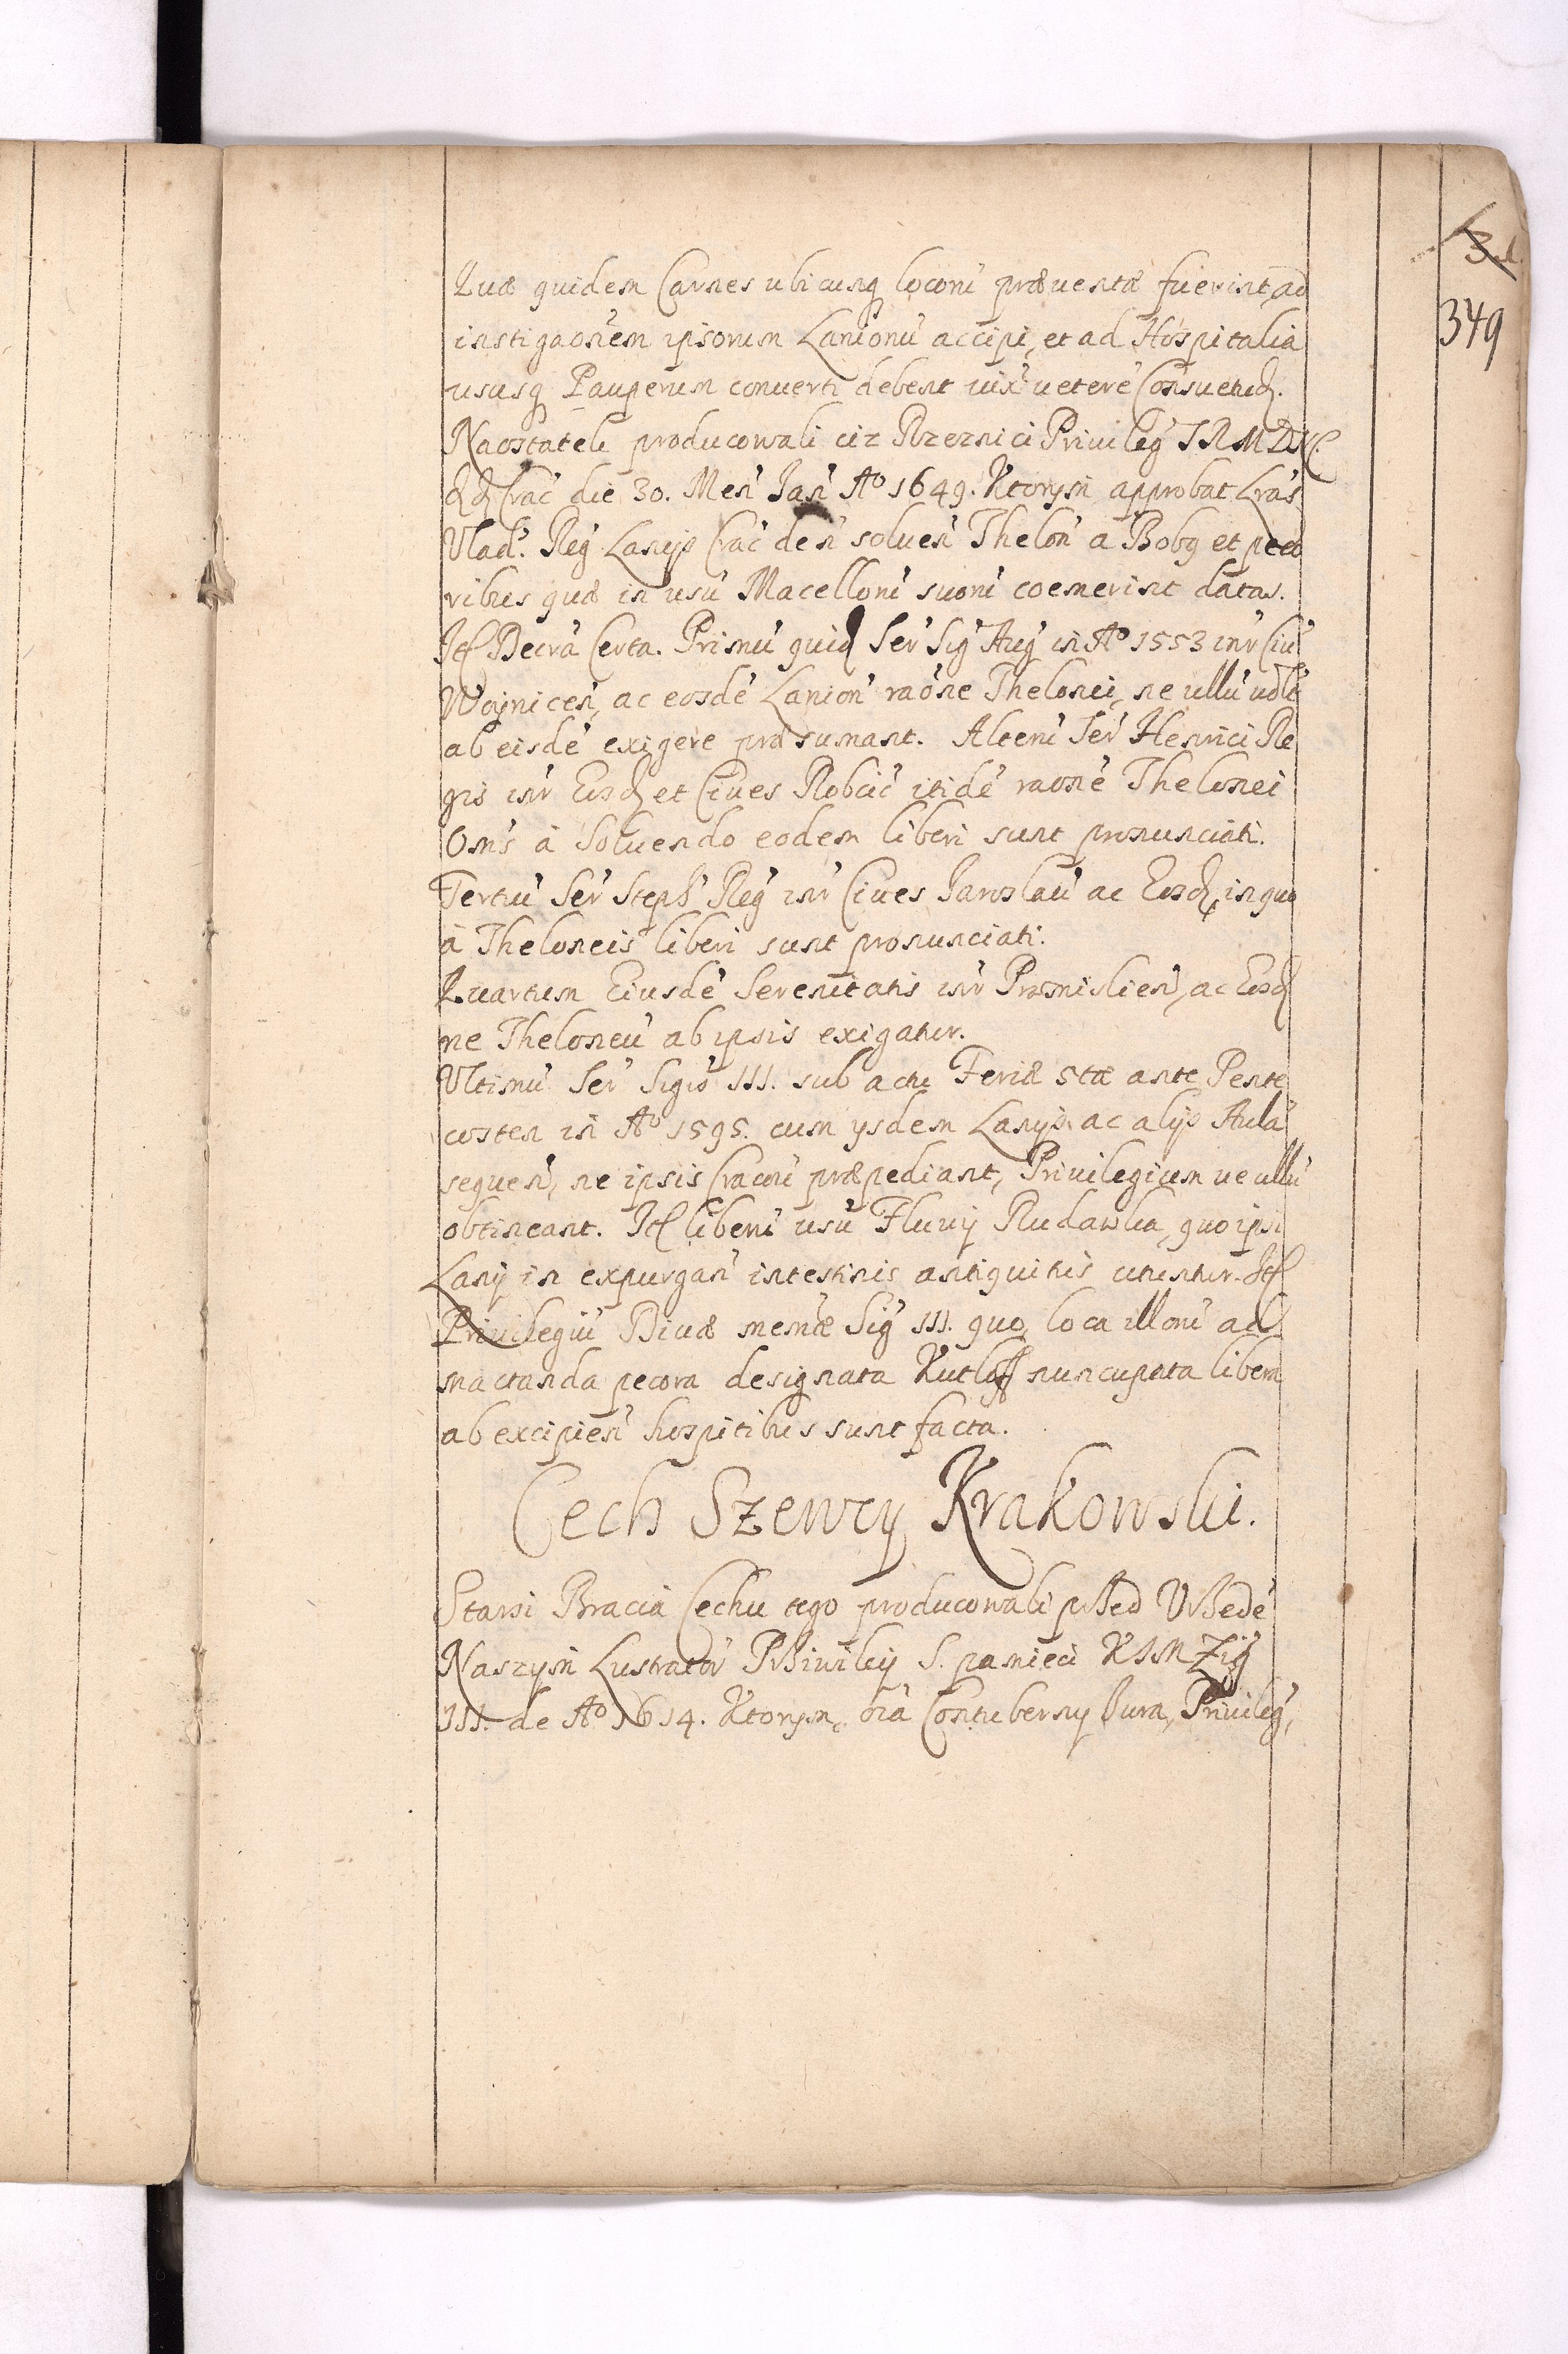 349
Quæ quidem Carnes ubicunq locorũ præventæ fuerint, ad
instigaõnem ipsorum Lanionũ accipi, et ad Hospitalia
ususq Pauperum converti debent iux̃ veterẽ Consuetud.
Naostatek producowali ciz Rzeznici Privileg̃ J K M D N
Crac̃ die 30. Men̄ Jan̄ Aº 1649. Ktorym approbat Lrãs
Vlad. Reg̃ Lanijs Crac̃ de ñ soluen̄ Thelon̄ a Bobq et peco
ribus quæ in usũ Macellorũ suorũ coemerint datas.
Jt Decrã Certa. Primũ quid Ser̃ Sig̃ Aug̃ in Aº 1553 int̃ Ciũ
Woynicen̄, ac eosdẽ Lanion̄ raõne Thelonei, ne ullũ
ab eisdẽ exigere præsumant. Alterũ Ser̃ Henrici Re
gis int̃ Eosd et Cives Robcic̃ itidẽ raõne Thelonei
Omẽs à Soluendo eodem liberi sunt pronunciati.
Tertiũ Ser̃ Steph̃ Reg̃ int̃ Cives Jaroslaũ ac Eosd, in quo
à Theloneis liberi sunt pronunciati.
Quartum Eiusdẽ Serenitatis int̃ Præmislien̄, ac Eosd
ne Theloneũ ab ipsis exigatur.
Ultimũ Ser̃ Sigis̃ III. sub actu Feriæ 5tæ ante Pente
costen in Aº 1595. cum ysdem Lanijs ac alijs Aulã
sequen̄, ne ipsis Cracoũ præpediant, Privilegium ve ullũ
obtineant. Jt liberũ usũ Fluvij Rudawka, quo ipsi
Lanij in expurgan̄ intestinis antiquitus utuntur. Jt
Privilegiũ Divæ memæ Sig̃ III. quo loca illorũ ad
mactanda pecora designata Kutloff nuncupata libera
ab excipien̄ hospitibus sunt facta.
Cech Szewcy Krakowski.
Starsi Bracia Cechu tego producowali przed Vrzedẽ
Naszym Lustrator̃ Prziviley S. pamieci K J M Zig̃
III. de Aº 1614. Ktorym, oĩa Contubernij Jura, Privileg̃,